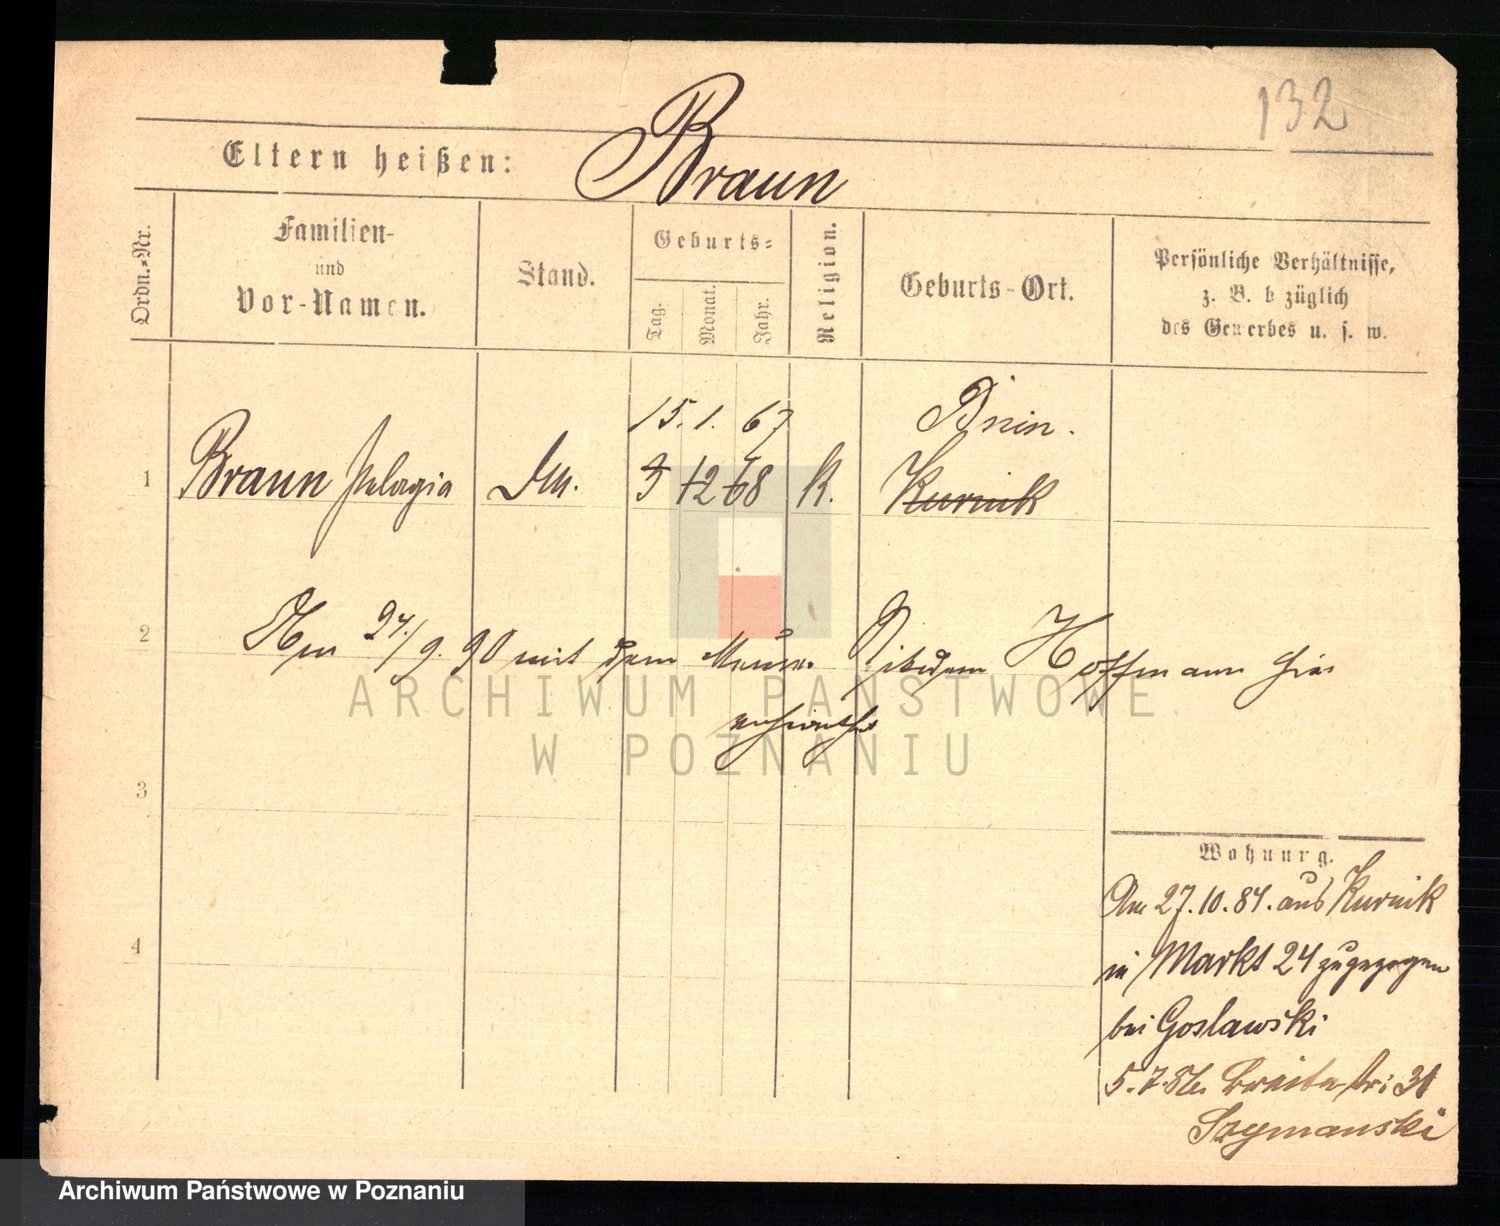 132
Eltern heißen: Braun
Ordn.-Nr.
Familien-
und
Vor-Namen.
Stand.
Geburts-
Tag.
Monat.
Jahr.
Religion.
Geburts-Ort.
Persönliche Verhältnisse,
z. B. b züglich
des Gewerbes u. s. w.
15. 1. 67 Bnin.
1 Braun Pelagia 3 12 68 K. Kurnik
2 Am 24./9. 90 mit dem Hoffmann hier
verheirathet
3
4
Wohnung.
Am 27.10.84. aus Kurnik
in Markt 24 zugezogen
bei Goslawski
5.7.86. Breitestr: 31
Szymanski
ARCHIWUM PAŃSTWOWE
W POZNANIU
Archiwum Państwowe w Poznaniu